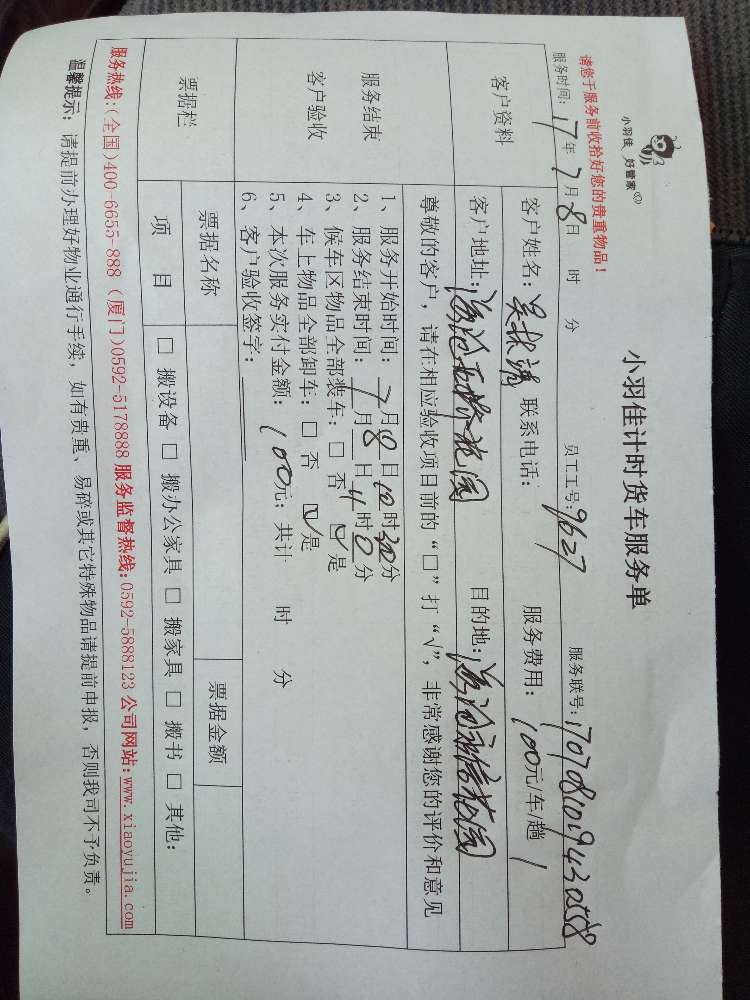 小羽佳 好管家
小羽佳计时货车服务单
请您于服务前收拾好您的贵重物品！
服务时间：17年7月8日 时 分 员工工号：9627 服务联号：17070810194230558
客户资料
客户姓名： 联系电话： 服务费用：100元/车/趟 1
客户地址：海沧 花园 目的地：海沧 花园
尊敬的客户，请在相应验收项目前的“□”打“√”，非常感谢您的评价和意见
服务结束
客户验收
1、服务开始时间：7月8日10时30分
2、服务结束时间：7月8日11时0分
3、候车区物品全部装车：□ 否 ☑是
4、车上物品全部卸车：□ 否 ☑是
5、本次服务实付金额：100元；共计 时 分
6、客户验收签字：
票据栏
票据名称 票据金额
项 目 □ 搬设备 □ 搬办公家具 □ 搬家具 □ 搬书 □ 其他：
服务热线：(全国)400-6655-888 (厦门)0592-5178888 服务监督热线：0592-5888123 公司网站：www.xiaoyujia.com
温馨提示：请提前办理好物业通行手续，如有贵重、易碎或其它特殊物品请提前申报，否则我司不予负责。